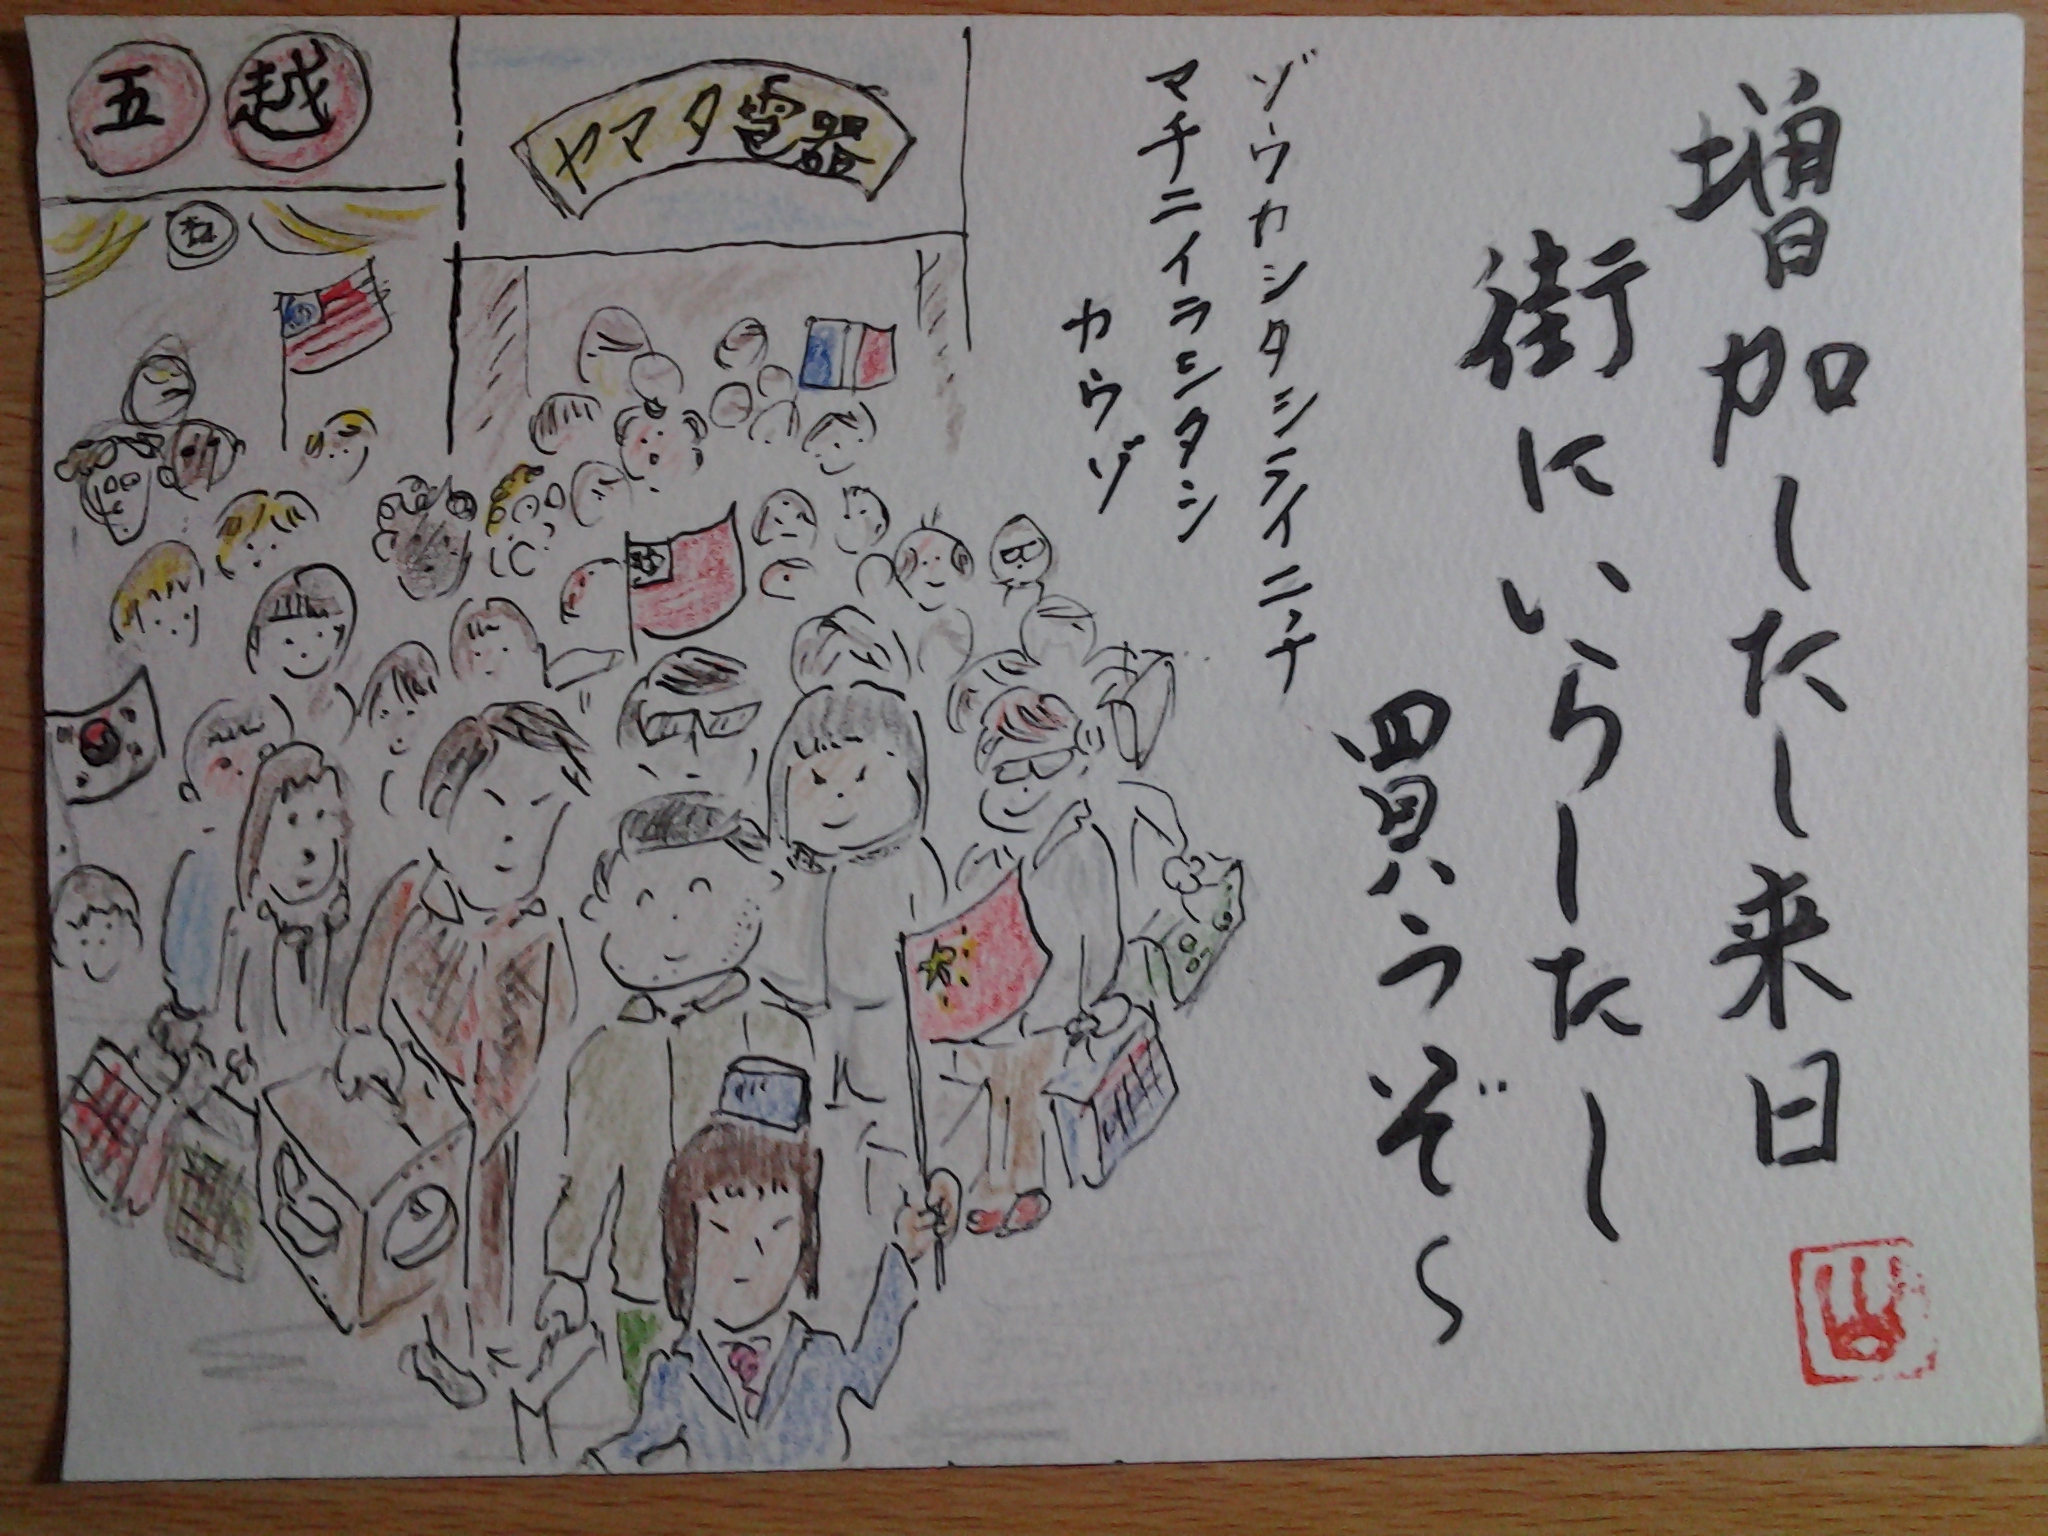 増加したし来日
街にいらしたし
買うぞ〜
ゾウカシタシライニチ
マチニイラシタシ
カウゾ
ヤマタ電器
五越